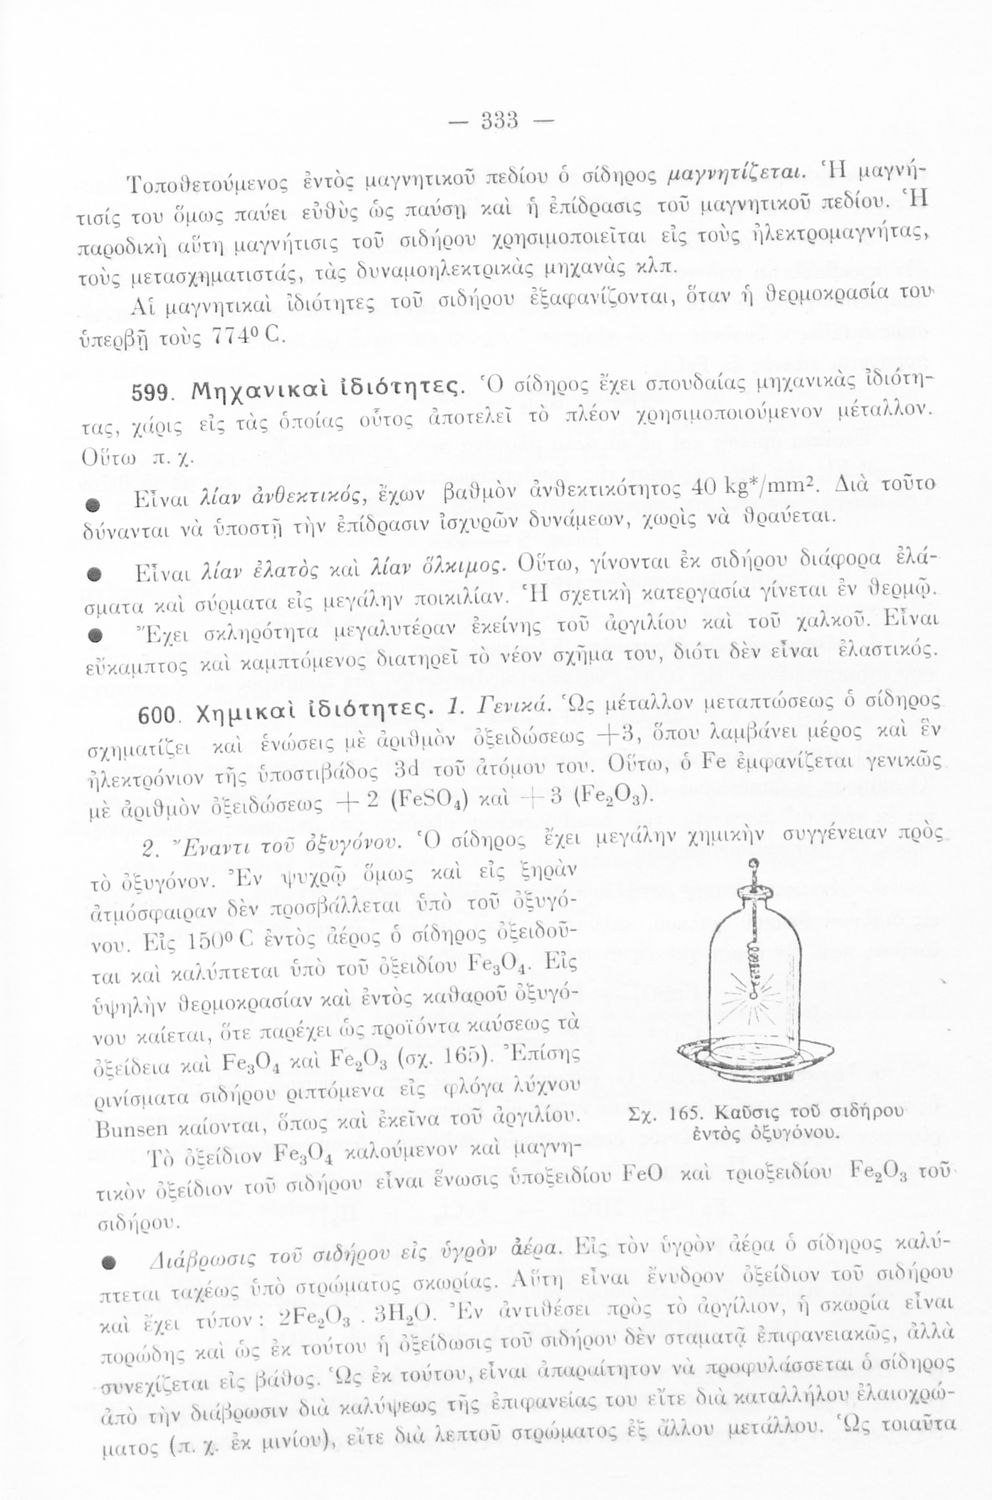 — 333 —
Τοποθετούμενος ἐντὸς μαγνητικοῦ πεδίου ὁ σίδηρος μαγνητίζεται. Ἡ μαγνή-
τισίς του ὅμως παύει εὐθὺς ὡς παύσῃ καὶ ἡ ἐπίδρασις τοῦ μαγνητικοῦ πεδίου. Ἡ
παροδικὴ αὕτη μαγνήτισις τοῦ σιδήρου χρησιμοποιεῖται εἰς τοὺς ἠλεκτρομαγνήτας,
τοὺς μετασχηματιστάς, τὰς δυναμοηλεκτρικὰς μηχανὰς κλπ.
Αἱ μαγνητικαὶ ἰδιότητες τοῦ σιδήρου ἐξαφανίζονται, ὅταν ἡ θερμοκρασία του
ὑπερβῇ τοὺς 774⁰ C.
599. Μηχανικαὶ ἰδιότητες. Ὁ σίδηρος ἔχει σπουδαίας μηχανικὰς ἰδιότη-
τας, χάρις εἰς τὰς ὁποίας οὗτος ἀποτελεῖ τὸ πλέον χρησιμοποιούμενον μέταλλον.
Οὕτω π. χ.
● Εἶναι λίαν ἀνθεκτικός, ἔχων βαθμὸν ἀνθεκτικότητος 40 kg*/mm². Διὰ τοῦτο
δύνανται νὰ ὑποστῇ τὴν ἐπίδρασιν ἰσχυρῶν δυνάμεων, χωρὶς νὰ θραύεται.
● Εἶναι λίαν ἐλατὸς καὶ λίαν ὅλκιμος. Οὕτω, γίνονται ἐκ σιδήρου διάφορα ἐλά-
σματα καὶ σύρματα εἰς μεγάλην ποικιλίαν. Ἡ σχετικὴ κατεργασία γίνεται ἐν θερμῷ.
● Ἔχει σκληρότητα μεγαλυτέραν ἐκείνης τοῦ ἀργιλίου καὶ τοῦ χαλκοῦ. Εἶναι
εὔκαμπτος καὶ καμπτόμενος διατηρεῖ τὸ νέον σχῆμα του, διότι δὲν εἶναι ἐλαστικός.
600. Χημικαὶ ἰδιότητες. 1. Γενικά. Ὡς μέταλλον μεταπτώσεως ὁ σίδηρος
σχηματίζει καὶ ἑνώσεις μὲ ἀριθμὸν ὀξειδώσεως +3, ὅπου λαμβάνει μέρος καὶ ἓν
ἠλεκτρόνιον τῆς ὑποστιβάδος 3d τοῦ ἀτόμου του. Οὕτω, ὁ Fe ἐμφανίζεται γενικῶς
μὲ ἀριθμὸν ὀξειδώσεως + 2 (FeSO₄) καὶ + 3 (Fe₂O₃).
2. Ἔναντι τοῦ ὀξυγόνου. Ὁ σίδηρος ἔχει μεγάλην χημικὴν συγγένειαν πρὸς
τὸ ὀξυγόνον. Ἐν ψυχρῷ ὅμως καὶ εἰς ξηρὰν
ἀτμόσφαιραν δὲν προσβάλλεται ὑπὸ τοῦ ὀξυγό-
νου. Εἰς 150⁰ C ἐντὸς ἀέρος ὁ σίδηρος ὀξειδοῦ-
ται καὶ καλύπτεται ὑπὸ τοῦ ὀξειδίου Fe₃O₄. Εἰς
ὑψηλὴν θερμοκρασίαν καὶ ἐντὸς καθαροῦ ὀξυγό-
νου καίεται, ὅτε παρέχει ὡς προϊόντα καύσεως τὰ
ὀξείδεια καὶ Fe₃O₄ καὶ Fe₂O₃ (σχ. 165). Ἐπίσης
ρινίσματα σιδήρου ριπτόμενα εἰς φλόγα λύχνου
Bunsen καίονται, ὅπως καὶ ἐκεῖνα τοῦ ἀργιλίου.
Τὸ ὀξείδιον Fe₃O₄ καλούμενον καὶ μαγνη-
Σχ. 165. Καῦσις τοῦ σιδήρου
ἐντὸς ὀξυγόνου.
τικὸν ὀξείδιον τοῦ σιδήρου εἶναι ἕνωσις ὑποξειδίου FeO καὶ τριοξειδίου Fe₂O₃ τοῦ
σιδήρου.
● Διάβρωσις τοῦ σιδήρου εἰς ὑγρὸν ἀέρα. Εἰς τὸν ὑγρὸν ἀέρα ὁ σίδηρος καλύ-
πτεται ταχέως ὑπὸ στρώματος σκωρίας. Αὕτη εἶναι ἔνυδρον ὀξείδιον τοῦ σιδήρου
καὶ ἔχει τύπον : 2Fe₂O₃ . 3H₂O. Ἐν ἀντιθέσει πρὸς τὸ ἀργίλιον, ἡ σκωρία εἶναι
πορώδης καὶ ὡς ἐκ τούτου ἡ ὀξείδωσις τοῦ σιδήρου δὲν σταματᾷ ἐπιφανειακῶς, ἀλλὰ
συνεχίζεται εἰς βάθος. Ὡς ἐκ τούτου, εἶναι ἀπαραίτητον νὰ προφυλάσσεται ὁ σίδηρος
ἀπὸ τὴν διάβρωσιν διὰ καλύψεως τῆς ἐπιφανείας του εἴτε διὰ καταλλήλου ἐλαιοχρώ-
ματος (π. χ. ἐκ μινίου), εἴτε διὰ λεπτοῦ στρώματος ἐξ ἄλλου μετάλλου. Ὡς τοιαῦτα